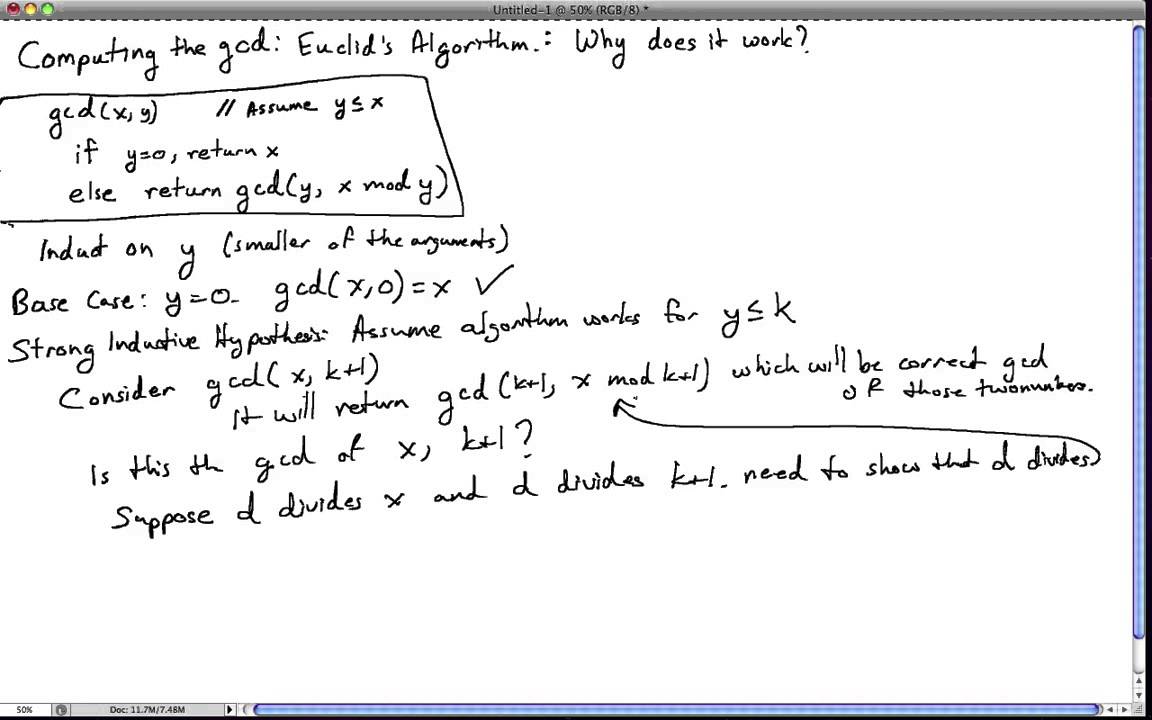 Untitled-1 @ 50% (RGB/8) *
Computing the gcd: Euclid's Algorithm.: Why does it work?
gcd(x,y) // Assume y≤x
if y=0, return x
else return gcd(y, x mod y)
Induct on y (smaller of the arguments)
Base Case: y=0. gcd(x,0)=x ✓
Strong Inductive Hypothesis: Assume algorithm works for y≤k
Consider gcd(x, k+1)
It will return gcd(k+1, x mod k+1) which will be correct gcd
of those two numbers.
Is this th gcd of x, k+1?
Suppose d divides x and d divides k+1. need to show that d divides
50% Doc: 11.7M/7.48M